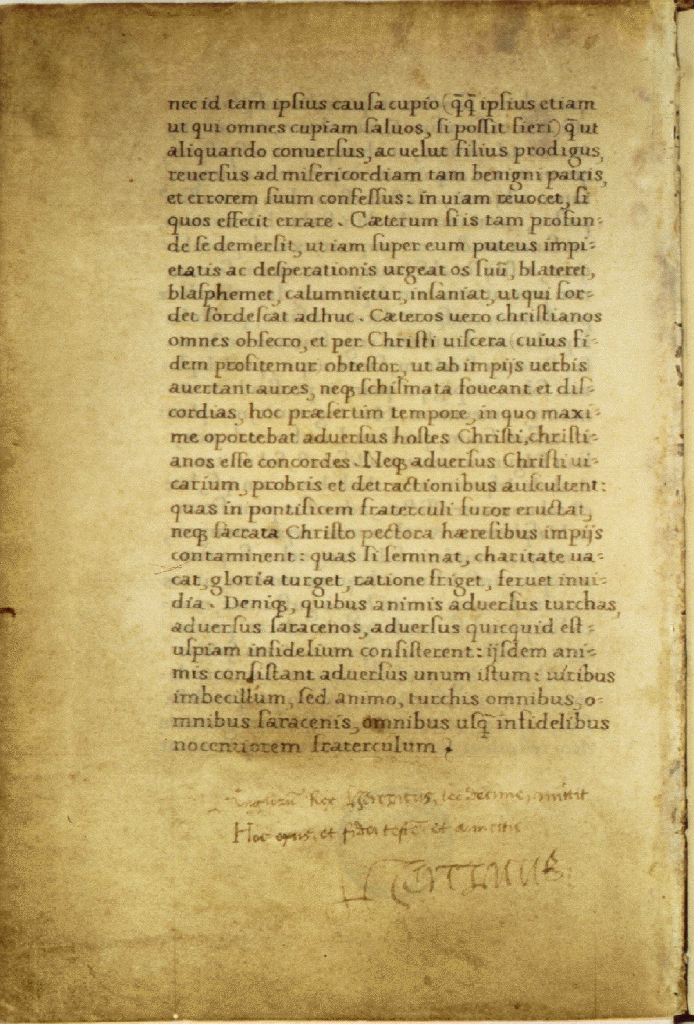 nec id tam ipſius cauſa cupio (q̄q̄ ipſius etiam
ut qui omnes cupiam ſaluos, ſi poſſit fieri) q̄ ut
aliquando conuerſus, ac uelut filius prodigus,
reuerſus ad miſericordiam tam benigni patris,
et errorem ſuum confeſſus: in uiam reuocet, ſi
quos effecit errare. Cæterum ſi is tam profun=
de ſe demerſit, ut iam ſuper eum puteus impi=
etatis ac deſperationis urgeat os ſuū, blateret,
blaſphemet, calumnietur, inſaniat, ut qui ſor=
det ſordeſcat adhuc. Cæteros uero chriſtianos
omnes obſecro, et per Chriſti uiſcera (cuius fi=
dem profitemur obteſtor, ut ab impijs uerbis
auertant aures, neq; ſchiſmata foueant et diſ=
cordias, hoc præſertim tempore, in quo maxi=
me oportebat aduerſus hoſtes Chriſti, chriſti=
anos eſſe concordes. Neq; aduerſus Chriſti ui=
carium, probris et detractionibus auſcultent:
quas in pontificem fraterculi furor eructat,
neq; ſacrata Chriſto pectora hæreſibus impijs
contaminent: quas ſi ſeminat, charitate ua=
cat, gloria turget, ratione friget, feruet inui=
dia. Deniq;, quibus animis aduerſus turchas,
aduerſus ſaracenos, aduerſus quicquid eſt =
uſpiam infidelium conſiſterent: ijſdem ani=
mis conſiſtant aduerſus unum iſtum: uiribus
imbecillum, ſed animo, turchis omnibus, o=
mnibus ſaracenis, omnibus uſq̄ infidelibus
nocentiorem fraterculum
Rex Henricus, leo decime, mittit
Hoc opus, et fidei teſtē et amicitie
Henricus